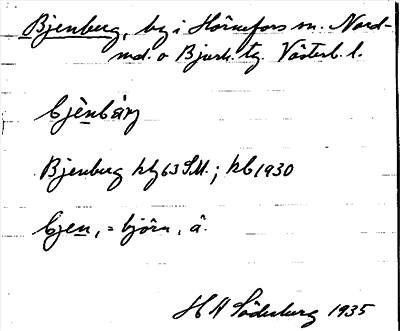 Bjenberg, by i Hörnefors sn. Nord-
md. o Bjurh. tg. Västerb. l.
bjènbárj
Bjenberg htj 63 S.M.; kb 1930
bjen, = björn, â.
H H Söderberg 1935